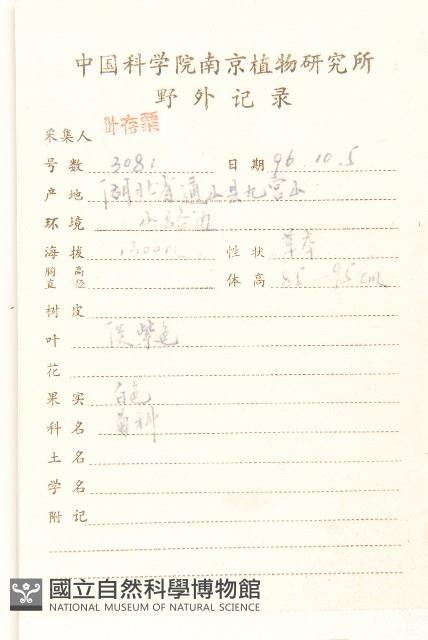 中国科学院南京植物研究所
野外记录
采集人 叶存粟
号数 3081 日期 96.10.5
产地 湖北省通山县九宫山
环境 小路边
海拔 1300m 性状 草本
胸高直径 体高 85-95cm
树皮
叶 淡紫色
花
果实 白色
科名 菊科
土名
学名
附记
國立自然科學博物館
NATIONAL MUSEUM OF NATURAL SCIENCE